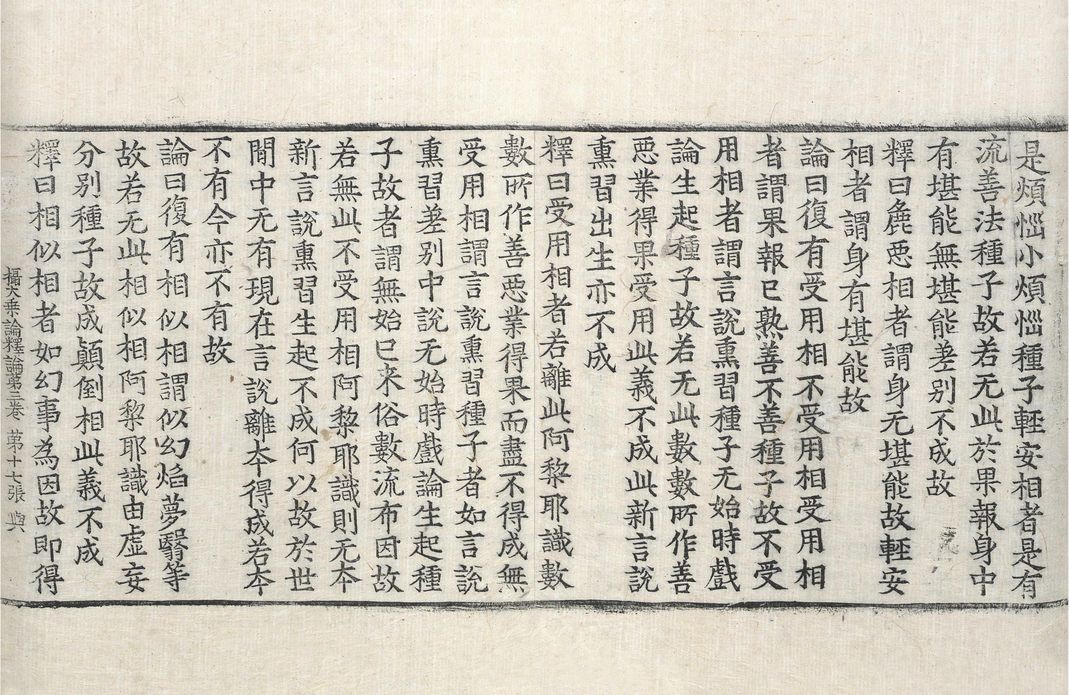 是煩惱小煩惱種子輕安相者是有
流善法種子故若无此於果報身中
有堪能無堪能差别不成故
釋曰麁惡相者謂身无堪能故輕安
相者謂身有堪能故
論曰復有受用相不受用相受用相
者謂果報已熟善不善種子故不受
用相者謂言說熏習種子无始時戲
論生起種子故若无此數數所作善
惡業得果受用此義不成此新言說
熏習出生亦不成
釋曰受用相者若離此阿黎耶識數
數所作善惡業得果而盡不得成無
受用相謂言說熏習種子者如言說
熏習差别中說无始時戲論生起種
子故者謂無始已来俗數流布因故
若無此不受用相阿黎耶識則无本
新言說熏習生起不成何以故於世
間中无有現在言說離本得成若本
不有今亦不有故
論曰復有相似相謂似幻焰夢翳等
故若无此相似相阿黎耶識由虛妄
分别種子故成顛倒相此義不成
釋曰相似相者如幻事為因故即得
攝大乗論釋論第三卷 第十七張 輿